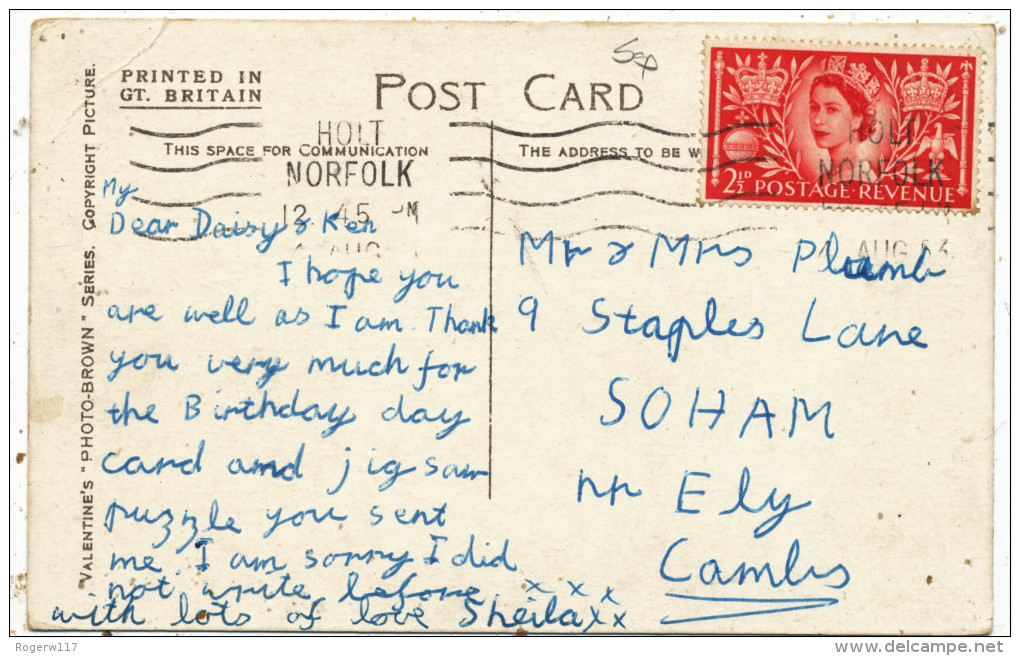 PRINTED IN
GT. BRITAIN
POST CARD
THIS SPACE FOR COMMUNICATION
THE ADDRESS TO BE W
HOLT
NORFOLK
12 45 PM
AUG
HOLT
NORFOLK
AUG 53
2½D POSTAGE REVENUE
"VALENTINE'S "PHOTO-BROWN" SERIES. COPYRIGHT PICTURE.
My
Dear Daisy & Ken
I hope you
are well as I am. Thank
you very much for
the Birthday day
card and jig saw
puzzle you sent
me. I am sorry I did
not write before. x x x
with lots of love Sheila xx
Mr & Mrs Plumb
9 Staples Lane
SOHAM
nr Ely
Cambs
Rogerw117
delcampe.net